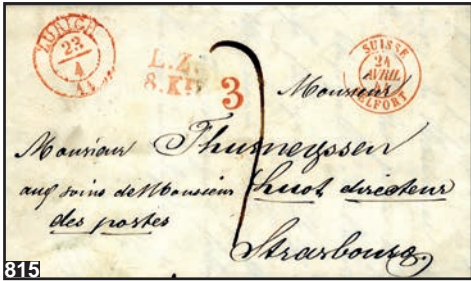 ZURICH
23
4
44
L.Z.
8. Kr
3
SUISSE
24
AVRIL
44
BELFORT
Monsieur
Monsieur Thurneyssen
aux soins de Monsieur Huot directeur
des postes
Strasbourg,
815